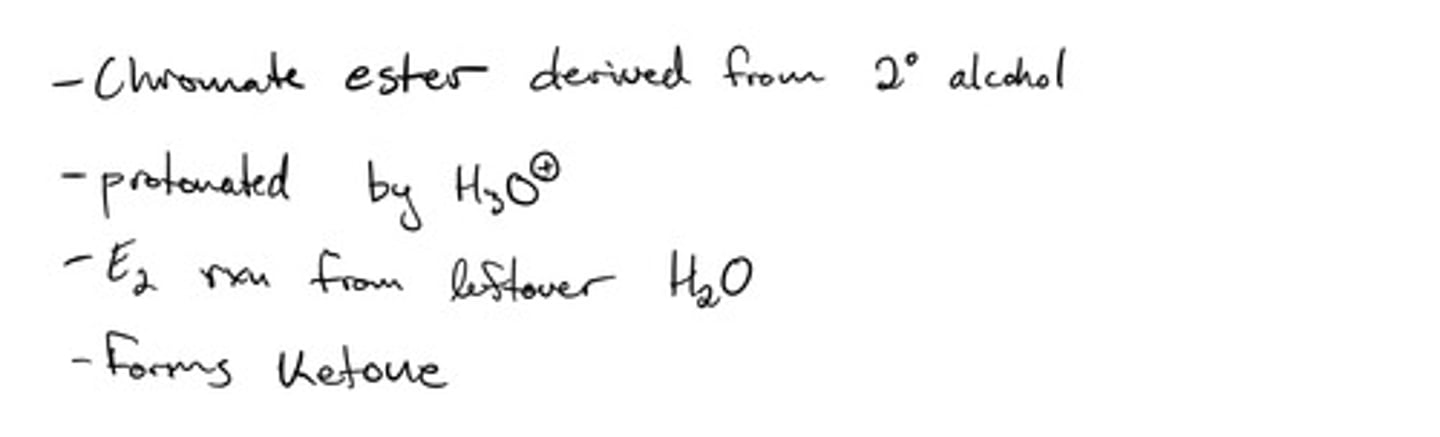 - Chromate ester derived from 2° alcohol
- protonated by H₃O⊕
- E₂ rxn from leftover H₂O
- Forms Ketone